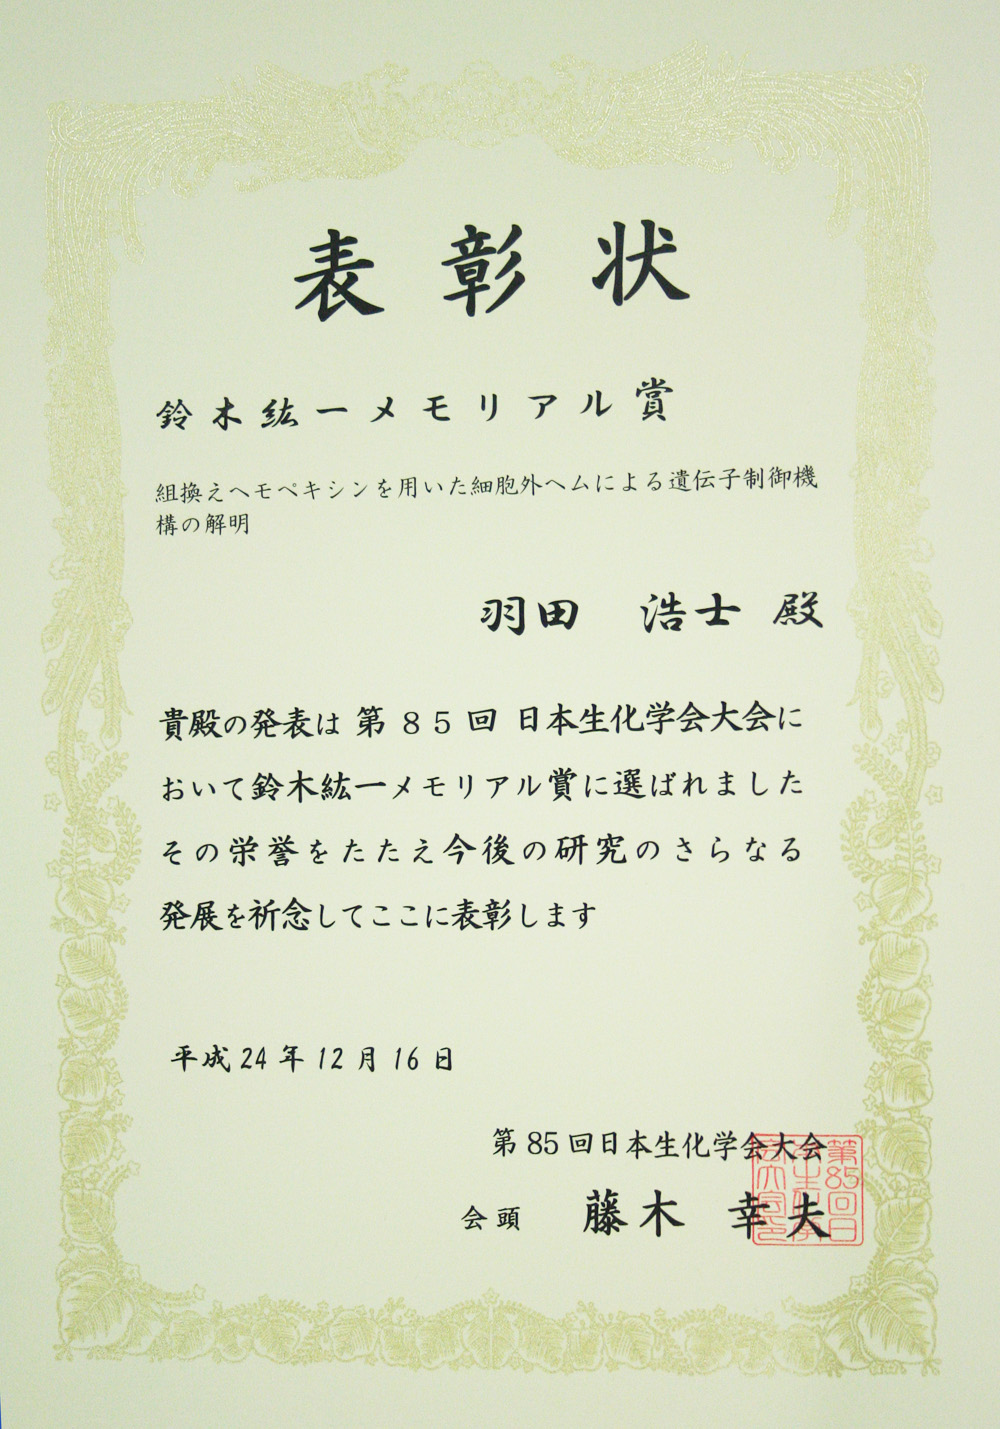 表彰状
鈴木紘一メモリアル賞
組換えヘモペキシンを用いた細胞外ヘムによる遺伝子制御機
構の解明
羽田　浩士 殿
貴殿の発表は 第 85 回 日本生化学会大会に
おいて鈴木紘一メモリアル賞に選ばれました
その栄誉をたたえ今後の研究のさらなる
発展を祈念してここに表彰します
平成 24 年 12 月 16 日
第 85 回日本生化学会大会
会頭　藤木　幸夫
第85回日
本生化学
会大会印